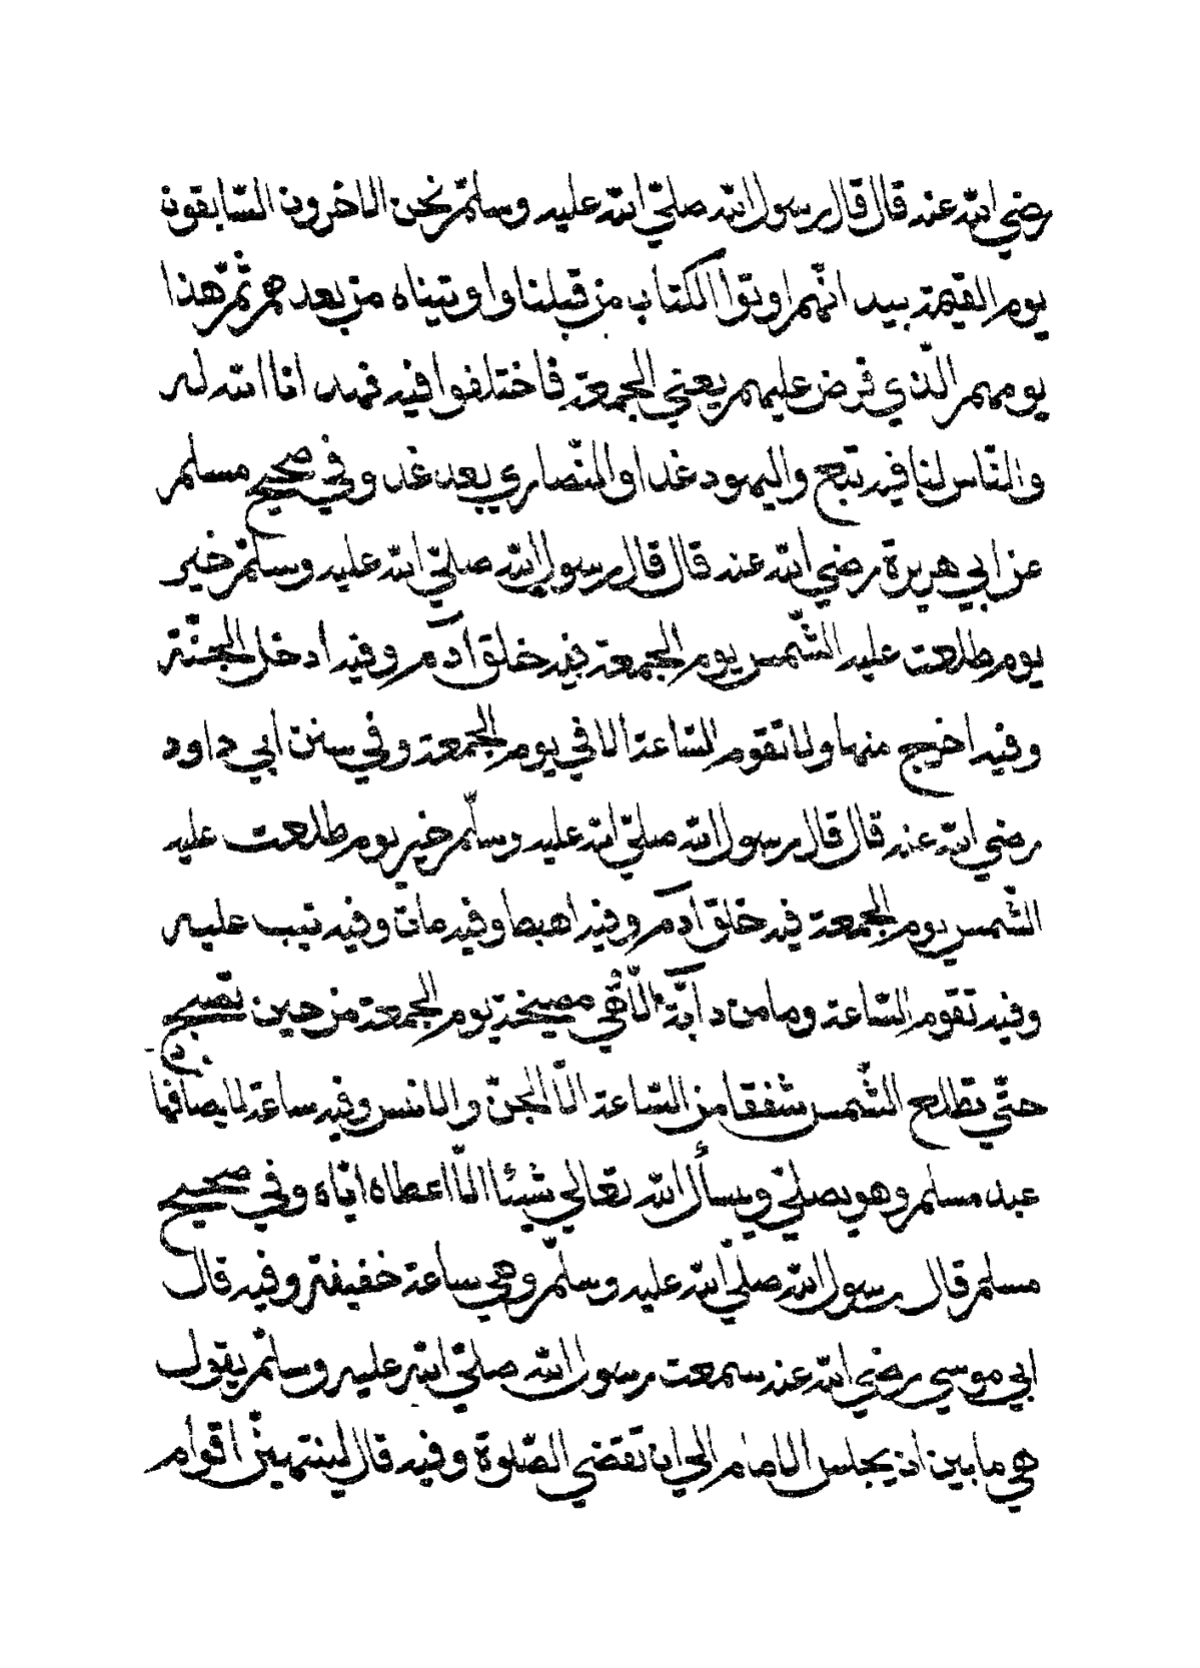 رضي الله عنه قال قال رسول الله صلّي الله عليه وسلّم نحن الاخرون السّابقون
يوم القيمة بيد انّهم اوتوا الكتاب من قبلنا واوتيناه من بعدهم ثمّ هذا
يومهم الّذي فرض عليهم يعني الجمعة فاختلفوا فيه فهدانا الله له
والنّاس لنا فيه تبع واليهود غدا والنّصاري بعد غد وفي صحيح مسلم
عن ابي هريرة رضي الله عنه قال قال رسول الله صلّي الله عليه وسلّم خير
يوم طلعت عليه الشّمس يوم الجمعة فيه خلق آدم وفيه ادخل الجنّة
وفيه اخرج منها ولا تقوم السّاعة الا في يوم الجمعة وفي سنن ابي داود
رضي الله عنه قال قال رسول الله صلّي الله عليه وسلّم خير يوم طلعت عليه
الشّمس يوم الجمعة فيه خلق آدم وفيه اهبط وفيه مات وفيه تيب عليه
وفيه تقوم السّاعة وما من دآبّة الّا هي مصيخة يوم الجمعة من حين تصبح
حتّي تطلع الشّمس شفقا من السّاعة الّا الجنّ والانس وفيه ساعة لا يصادفها
عبد مسلم وهو يصلّي ويسأل الله تعالي شيئا الّا اعطاه ايّاه وفي صحيح
مسلم قال رسول الله صلّي الله عليه وسلّم وهي ساعة خفيفة وفيه قال
ابي موسي رضي الله عنه سمعت رسول الله صلّي الله عليه وسلّم يقول
هي ما بين ان يجلس الامام الي ان تقضي الصّلوة وفيه قال لينتهينّ اقوام